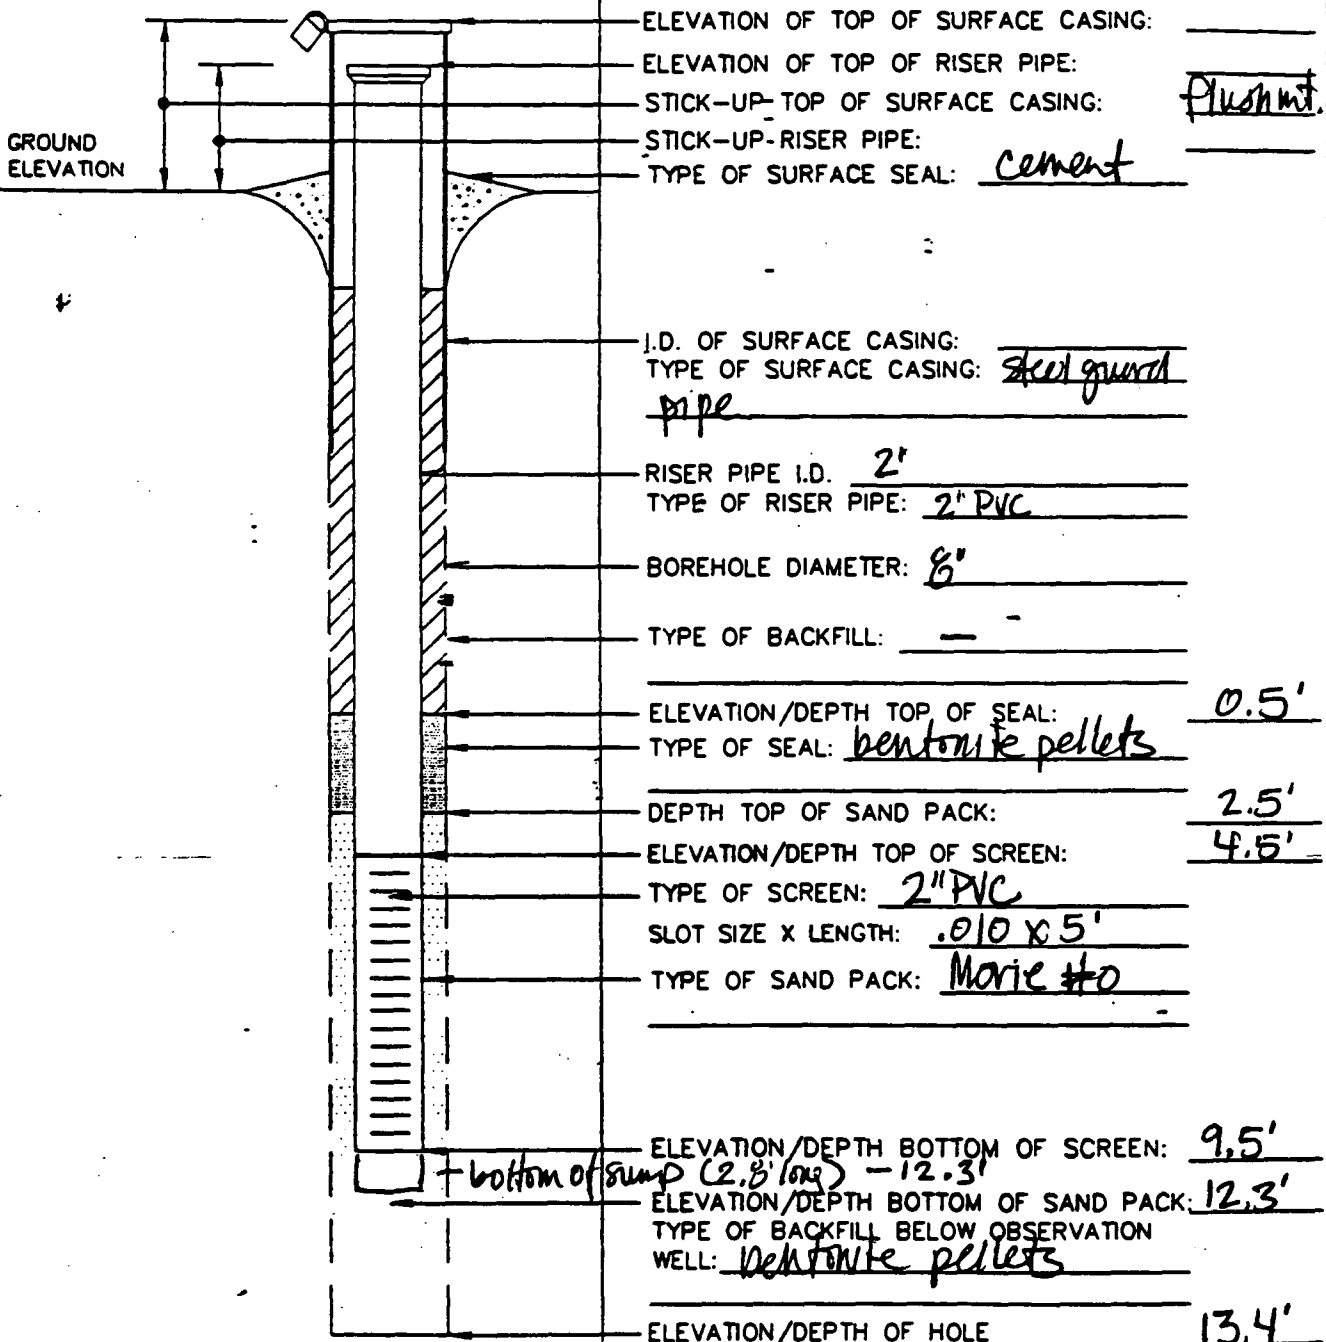 ELEVATION OF TOP OF SURFACE CASING:
ELEVATION OF TOP OF RISER PIPE:
STICK-UP-TOP OF SURFACE CASING: flush mt.
GROUND
ELEVATION
STICK-UP-RISER PIPE:
TYPE OF SURFACE SEAL: cement
I.D. OF SURFACE CASING:
TYPE OF SURFACE CASING: steel guard
pipe
RISER PIPE I.D. 2"
TYPE OF RISER PIPE: 2" PVC
BOREHOLE DIAMETER: 8"
TYPE OF BACKFILL: —
ELEVATION/DEPTH TOP OF SEAL: 0.5'
TYPE OF SEAL: bentonite pellets
DEPTH TOP OF SAND PACK: 2.5'
ELEVATION/DEPTH TOP OF SCREEN: 4.5'
TYPE OF SCREEN: 2" PVC
SLOT SIZE X LENGTH: .010 x 5'
TYPE OF SAND PACK: Morie #0
ELEVATION/DEPTH BOTTOM OF SCREEN: 9.5'
bottom of sump (2.8' long) - 12.3'
ELEVATION/DEPTH BOTTOM OF SAND PACK: 12.3'
TYPE OF BACKFILL BELOW OBSERVATION
WELL: bentonite pellets
ELEVATION/DEPTH OF HOLE 13.4'